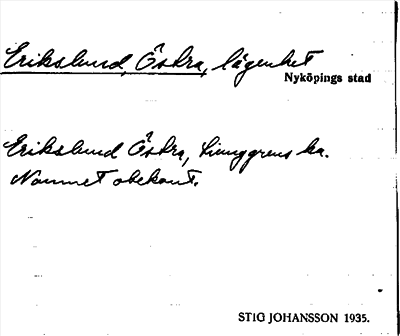 Erikslund, Östra, lägenhet
Nyköpings stad
Erikslund Östra, Liunggrens ka.
Namnet obekant.
STIG JOHANSSON 1935.